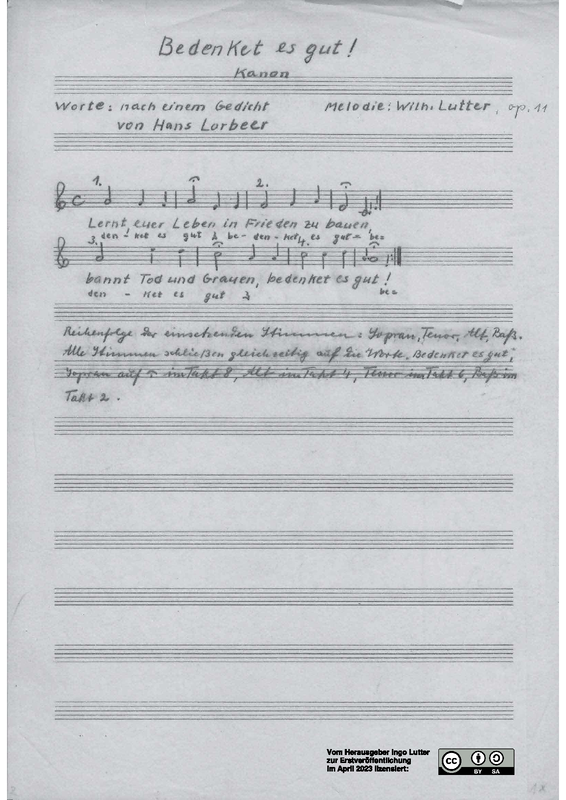 Bedenket es gut!
Kanon
Worte: nach einem Gedicht
von Hans Lorbeer
Melodie: Wilh. Lutter, op. 11
1. 2.
Lernt euer Leben in Frieden zu bauen,
den - ket es gut be - den - ket es gut be=
3. 4.
bannt Tod und Grauen, bedenket es gut!
den - ket es gut be=
Reihenfolge der einsetzenden Stimmen: Sopran, Tenor, Alt, Baß.
Alle Stimmen schließen gleichzeitig auf die Worte, Bedenket es gut,
Sopran auf im Takt 8, Alt im Takt 4, Tenor im Takt 6, Baß im
Takt 2.
Vom Herausgeber Ingo Lutter
zur Erstveröffentlichung
im April 2023 lizensiert:
cc
BY SA